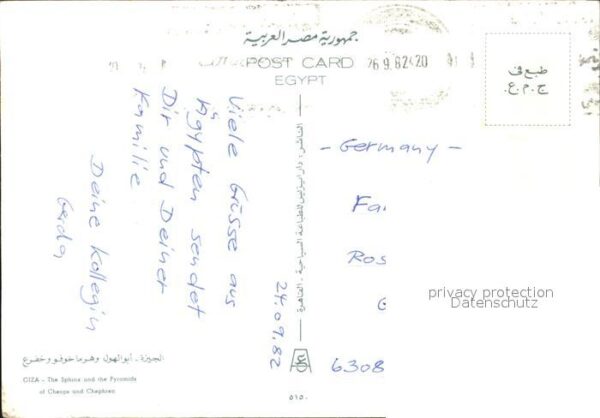 جمهورية مصر العربية
POST CARD
EGYPT
26.9.82 20
طبع فى
ج.م.ع.
Viele Grüsse aus
Ägypten sendet
Dir und Deiner
Familie
Deine Kollegin
Gerda
24.09.82
الناشر: دار ايزيس للطباعة السياحية - القاهرة
- Germany -
Fa
Ros
6308
privacy protection
Datenschutz
الجيزة - أبو الهول وهرما خوفو وخفرع
GIZA - The Sphinx and the Pyramids
of Cheops and Chephren
٥١٥٠